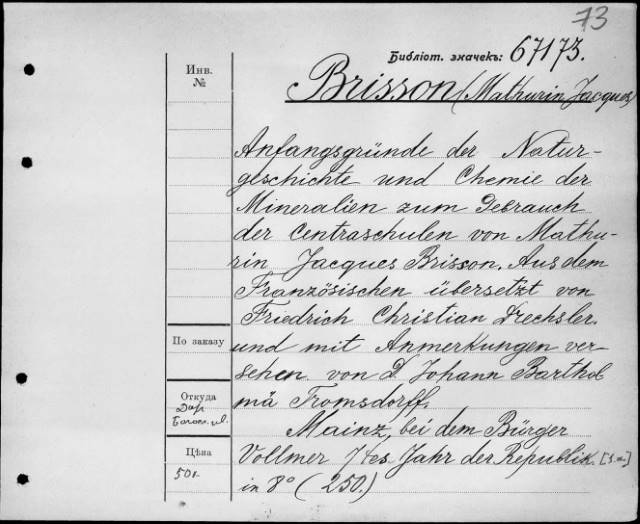 73
Библіот. значекъ: 67173.
Инв.
№
Brisson (Mathurin Jacques)
Anfangsgründe der Natur-
geschichte und Chemie der
Mineralien zum Gebrauch
der Centraschulen von Mathu-
rin Jacques Brisson. Aus dem
Französischen übersetzt von
Friedrich Christian Drechsler.
По заказу
und mit Anmerkungen ver-
sehen von D. Johann Barthol
mä Tromsdorff.
Откуда
Дар
Mainz, bei dem Bürger
Цѣна
50к.
Vollmer 7tes Jahr der Republik.
in 8° (250.)